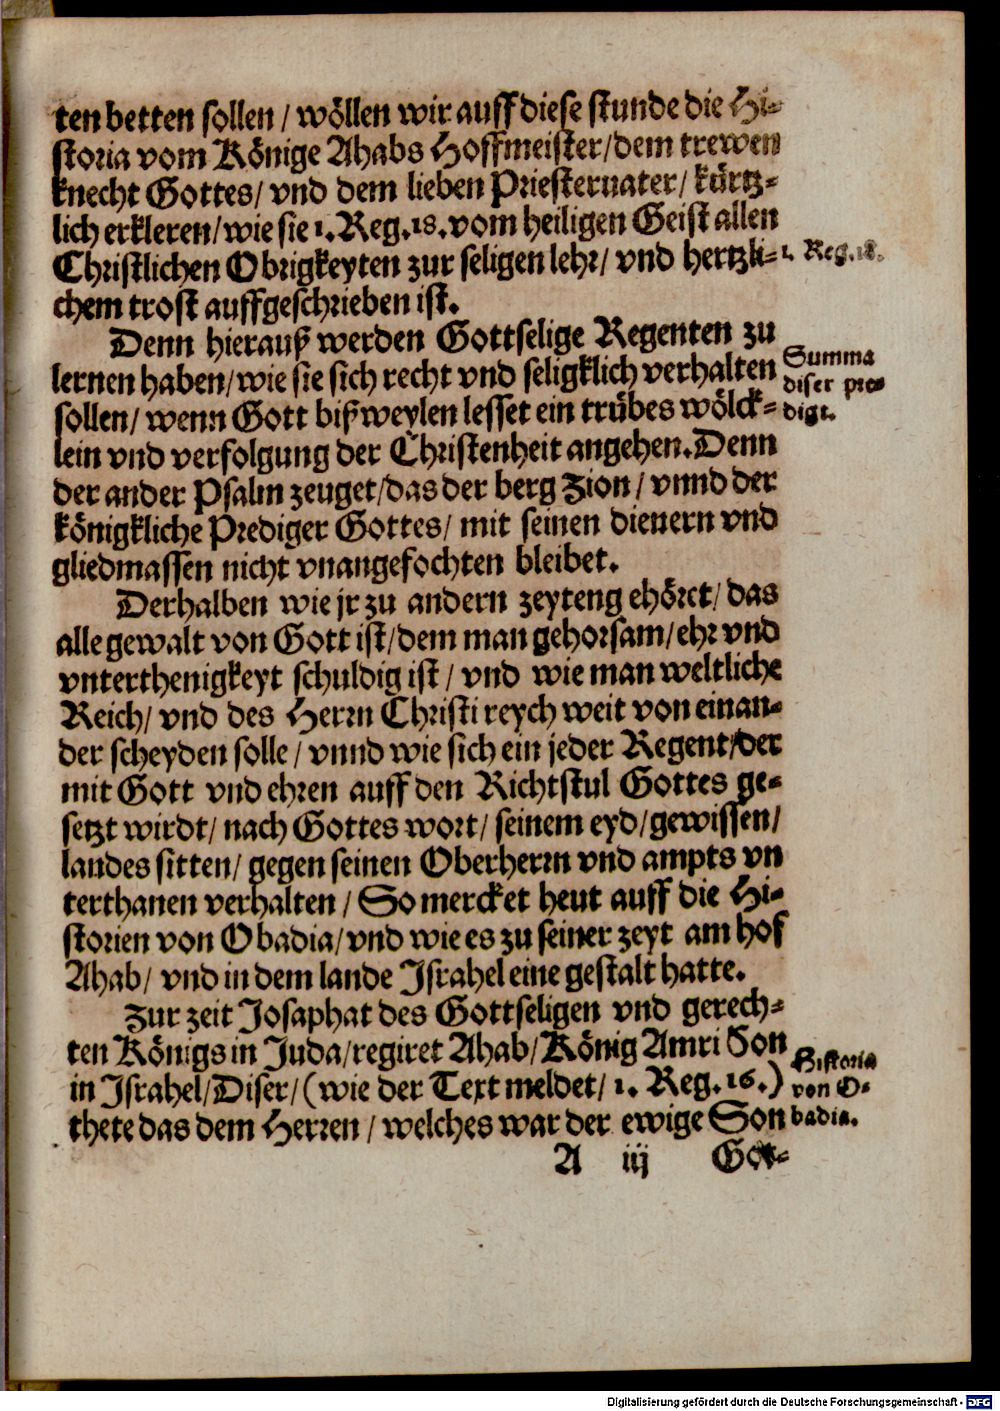 ten betten sollen / wöllen wir auff diese stunde die Hi-
storia vom Könige Ahabs Hoffmeister / dem trewen
knecht Gottes / vnd dem lieben Priesteruater / kürtz-
lich erkleren / wie sie 1. Reg. 18. vom heiligen Geist allen
Christlichen Obrigkeyten zur seligen lehr / vnd hertzli-
1. Reg. 18.
chem trost auffgeschrieben ist.
Denn hierauß werden Gottselige Regenten zu
lernen haben / wie sie sich recht vnd seligklich verhalten
Summa
diser pre-
digt.
sollen / wenn Gott bißweylen lesset ein trübes wölck-
lein vnd verfolgung der Christenheit angehen. Denn
der ander Psalm zeuget / das der berg Zion / vnnd der
königkliche Prediger Gottes / mit seinen dienern vnd
gliedmassen nicht vnangefochten bleibet.
Derhalben wie jr zu andern zeyteng ehöret / das
alle gewalt von Gott ist / dem man gehorsam / ehr vnd
vnterthenigkeyt schuldig ist / vnd wie man weltliche
Reich / vnd des Herrn Christi reych weit von einan-
der scheyden solle / vnnd wie sich ein jeder Regent / der
mit Gott vnd ehren auff den Richtstul Gottes ge-
setzt wirdt / nach Gottes wort / seinem eyd / gewissen /
landes sitten / gegen seinen Oberherrn vnd ampts vn
terthanen verhalten / So mercket heut auff die Hi-
storien von Obadia / vnd wie es zu seiner zeyt am hof
Ahab / vnd in dem lande Israhel eine gestalt hatte.
Zur zeit Josaphat des Gottseligen vnd gerech-
ten Königs in Juda / regiret Ahab / König Amri Son
Historia
von O-
badia.
in Israhel / Diser / (wie der Text meldet / 1. Reg. 16.)
thete das dem Herren / welches war der ewige Son
A iij Got-
Digitalisierung gefördert durch die Deutsche Forschungsgemeinschaft - DFG